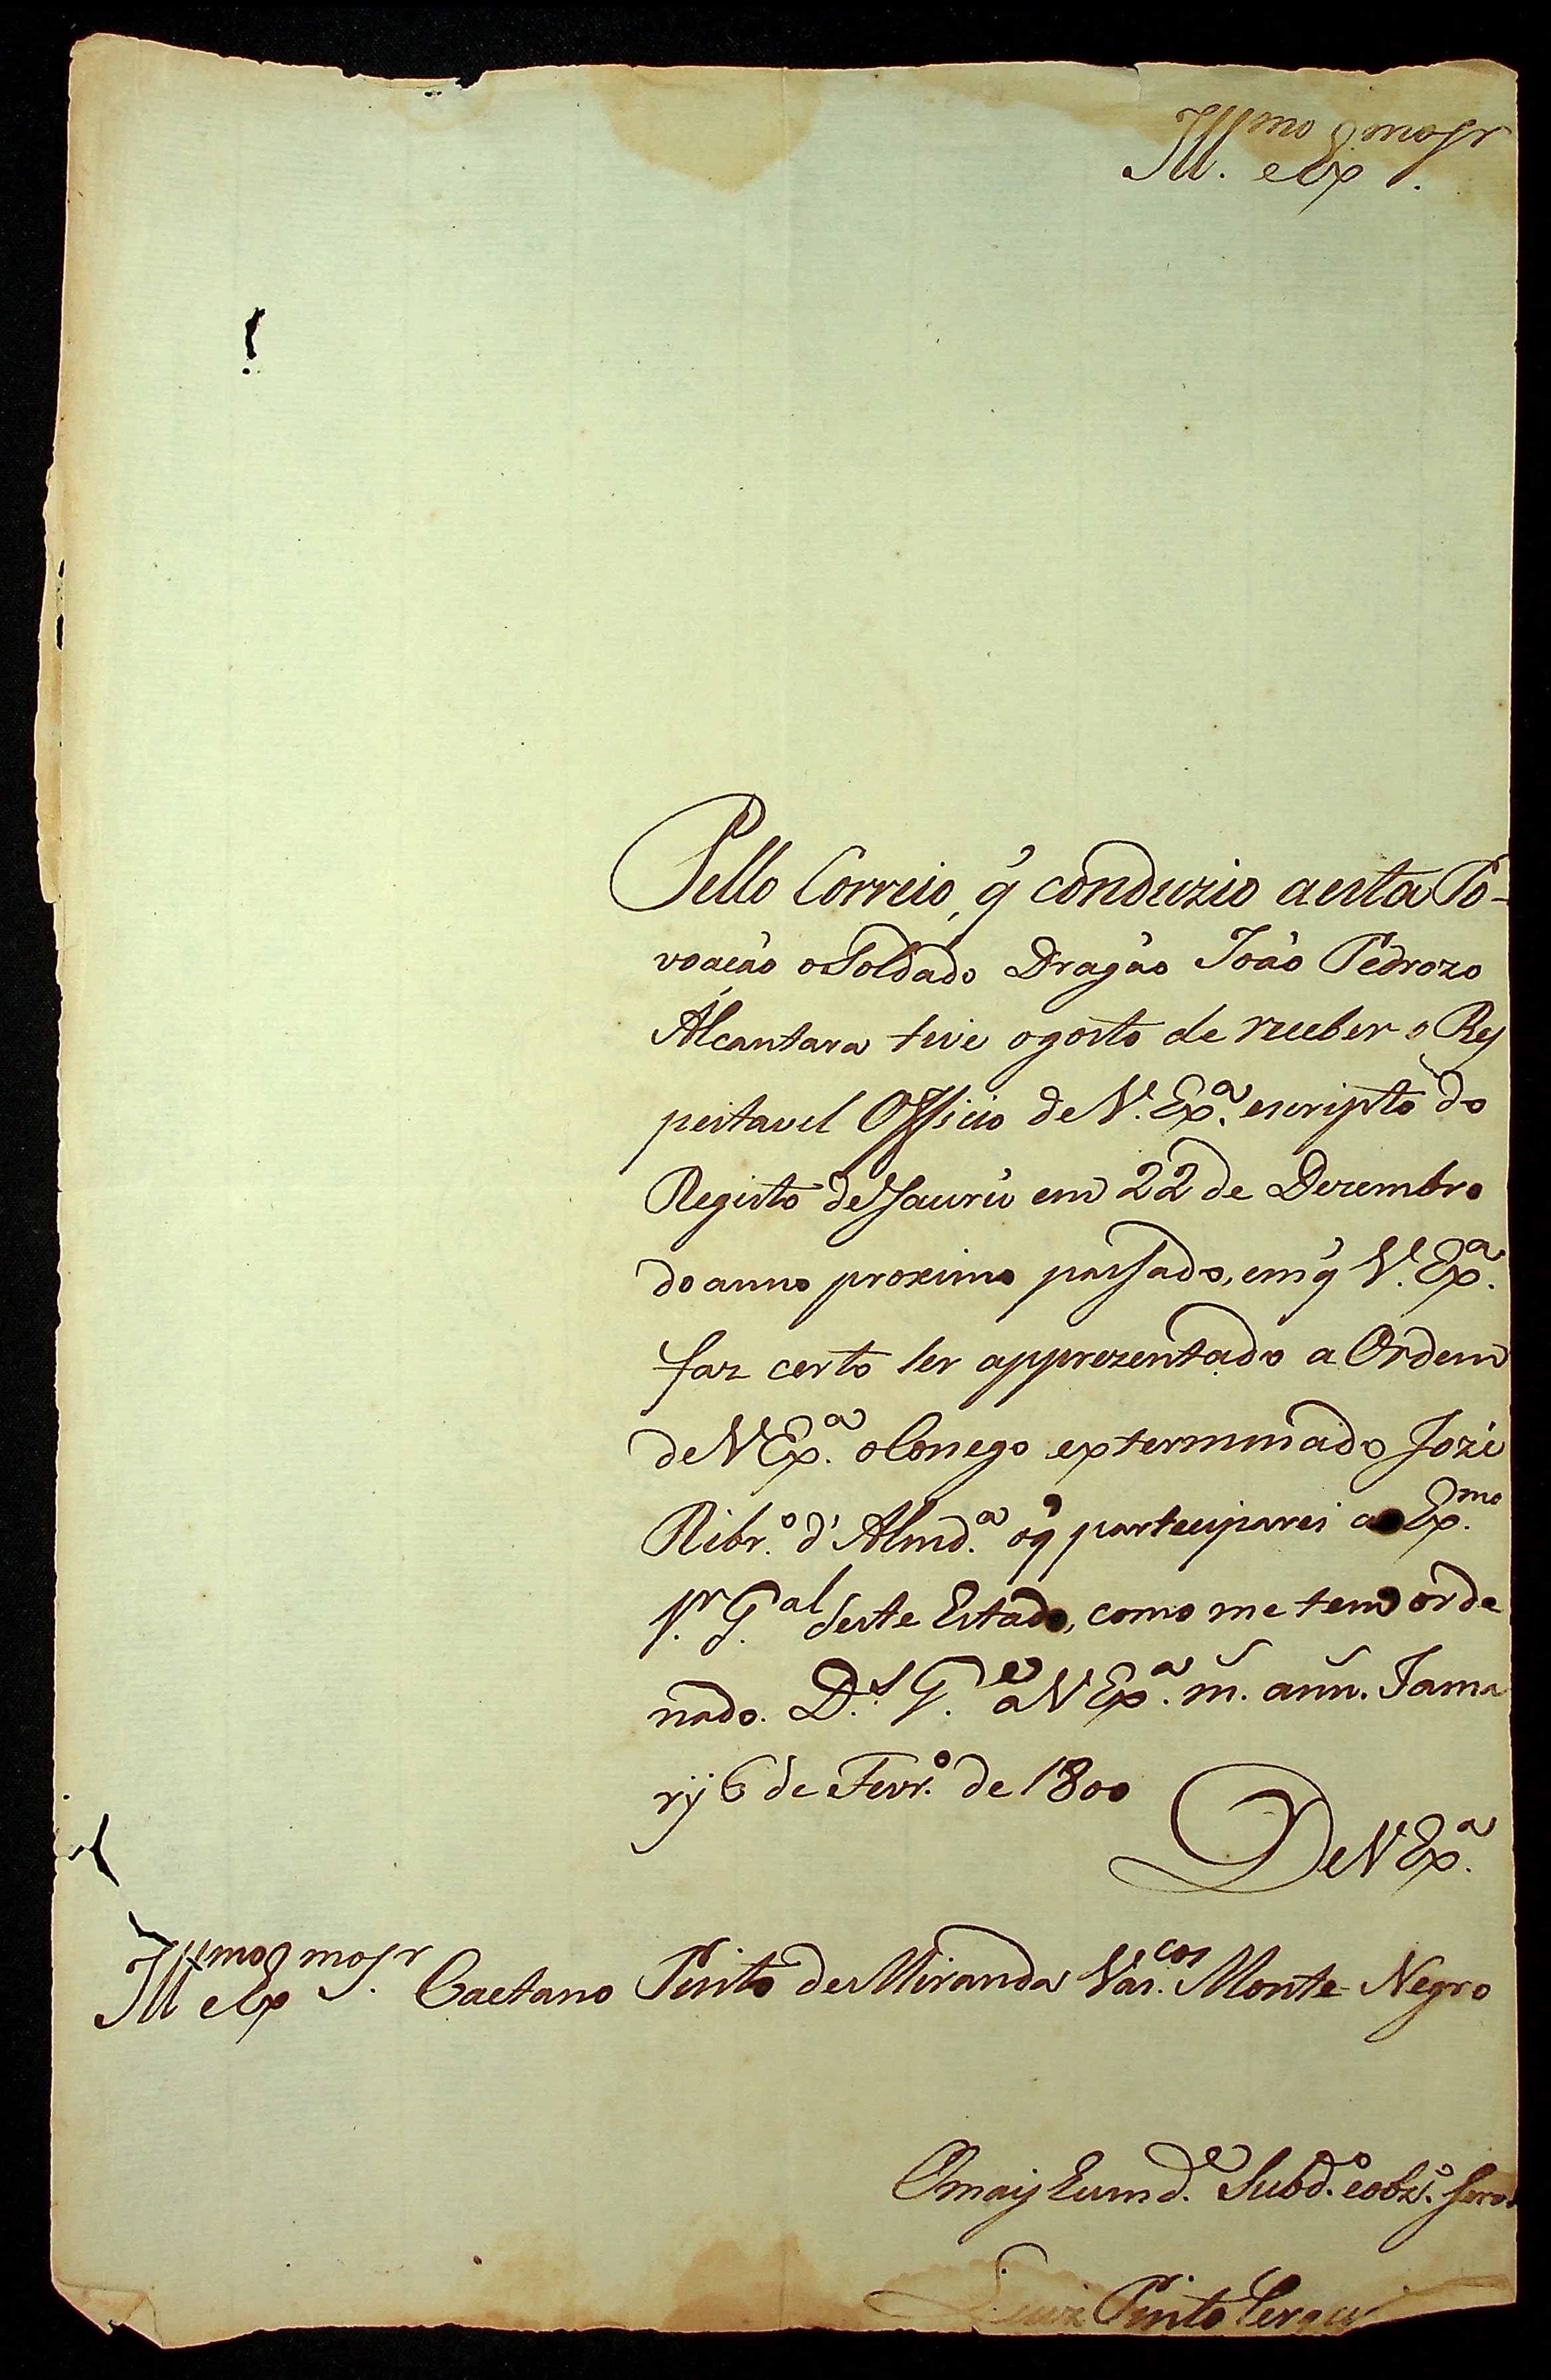 Ill.mo e Ex.mo Sr.
Pello Correio, q̃ conduzio aesta Po-
voação oSoldado Dragão João Pedrozo
Alcantara tive ogosto de receber o Res
peitavel Officio deV. Ex.a escripto do
Registo deJaurú em 22 de Dezembro
doanno proximo passado, emq̃ V. Ex.a
faz certo ter apprezentado a Ordem
deV Ex.a oConego exterminado Jozé
Ribr.o d'Almd.a oq̃ parteciparei ao Ex.mo
Sr. G.al deste Estado, como me tem orde
nado. D.s G.e aV Ex.a m. ann. Jama
rÿ 6 de Fevr.o de 1800
DeV Ex.a
Ill.mo e Ex.mo Sr. Caetano Pinto deMiranda Vas.cos Monte Negro
Omais humd.e Subd.o eobz.o
Luiz Pinto